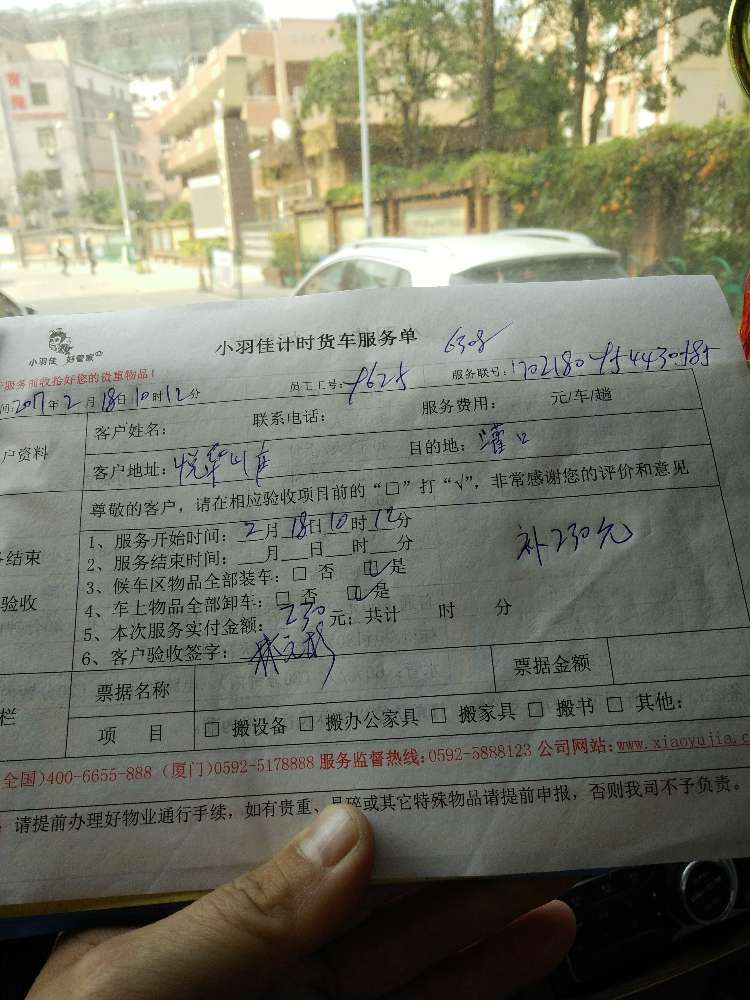 小羽佳 好管家
小羽佳计时货车服务单
服务前收拾好您的贵重物品！
间:2017年2月18日10时12分 员工工号: 9625 服务联号:
户资料 客户姓名： 联系电话： 服务费用： 元/车/趟
客户地址： 目的地：灌口
尊敬的客户，请在相应验收项目前的“□”打“√”，非常感谢您的评价和意见
务结束
验收
1、服务开始时间：2月18日10时12分
2、服务结束时间：__月__日__时__分
3、候车区物品全部装车：□ 否 ☑是
4、车上物品全部卸车：□ 否 ☑是
补230元
5、本次服务实付金额：230元；共计 时 分
6、客户验收签字：
栏 票据名称 票据金额
项 目 □ 搬设备 □ 搬办公家具 □ 搬家具 □ 搬书 □ 其他：
全国)400-6655-888 (厦门)0592-5178888 服务监督热线:0592-5888123 公司网站:www.xiaoyujia.c
请提前办理好物业通行手续，如有贵重、易碎或其它特殊物品请提前申报，否则我司不予负责。